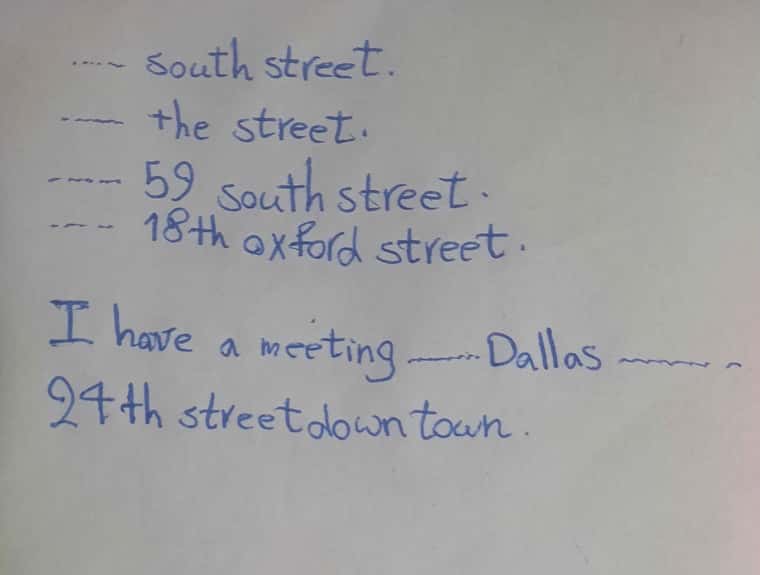 ..... south street.
----- the street.
----- 59 south street.
---- 18th oxford street.
I have a meeting ------ Dallas --------
24th street down town.